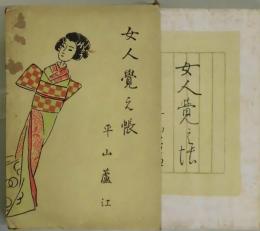 女人覺え帳
平山蘆江
女人覺え帳